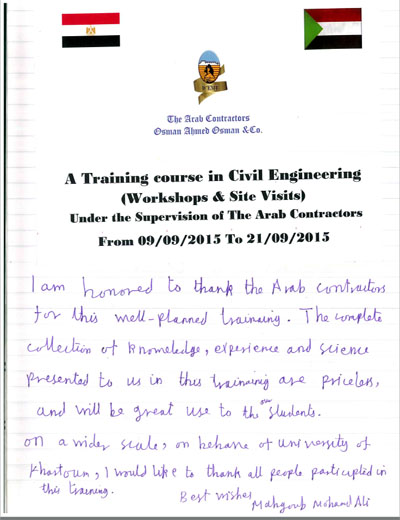 The Arab Contractors
Osman Ahmed Osman &Co.
A Training course in Civil Engineering
(Workshops & Site Visits)
Under the Supervision of The Arab Contractors
From 09/09/2015 To 21/09/2015
I am honored to thank the Arab contractors
for this well-planned trainaing. The complete
collection of knomeledge, experience and science
presented to us in this trainaing are priceless,
and will be great use to the our students.
on a wider scale, on behane of university of
Khartoum, I would like to thank all people particpted in
this training.
Best wishes
Mahgoub Mohamd Ali